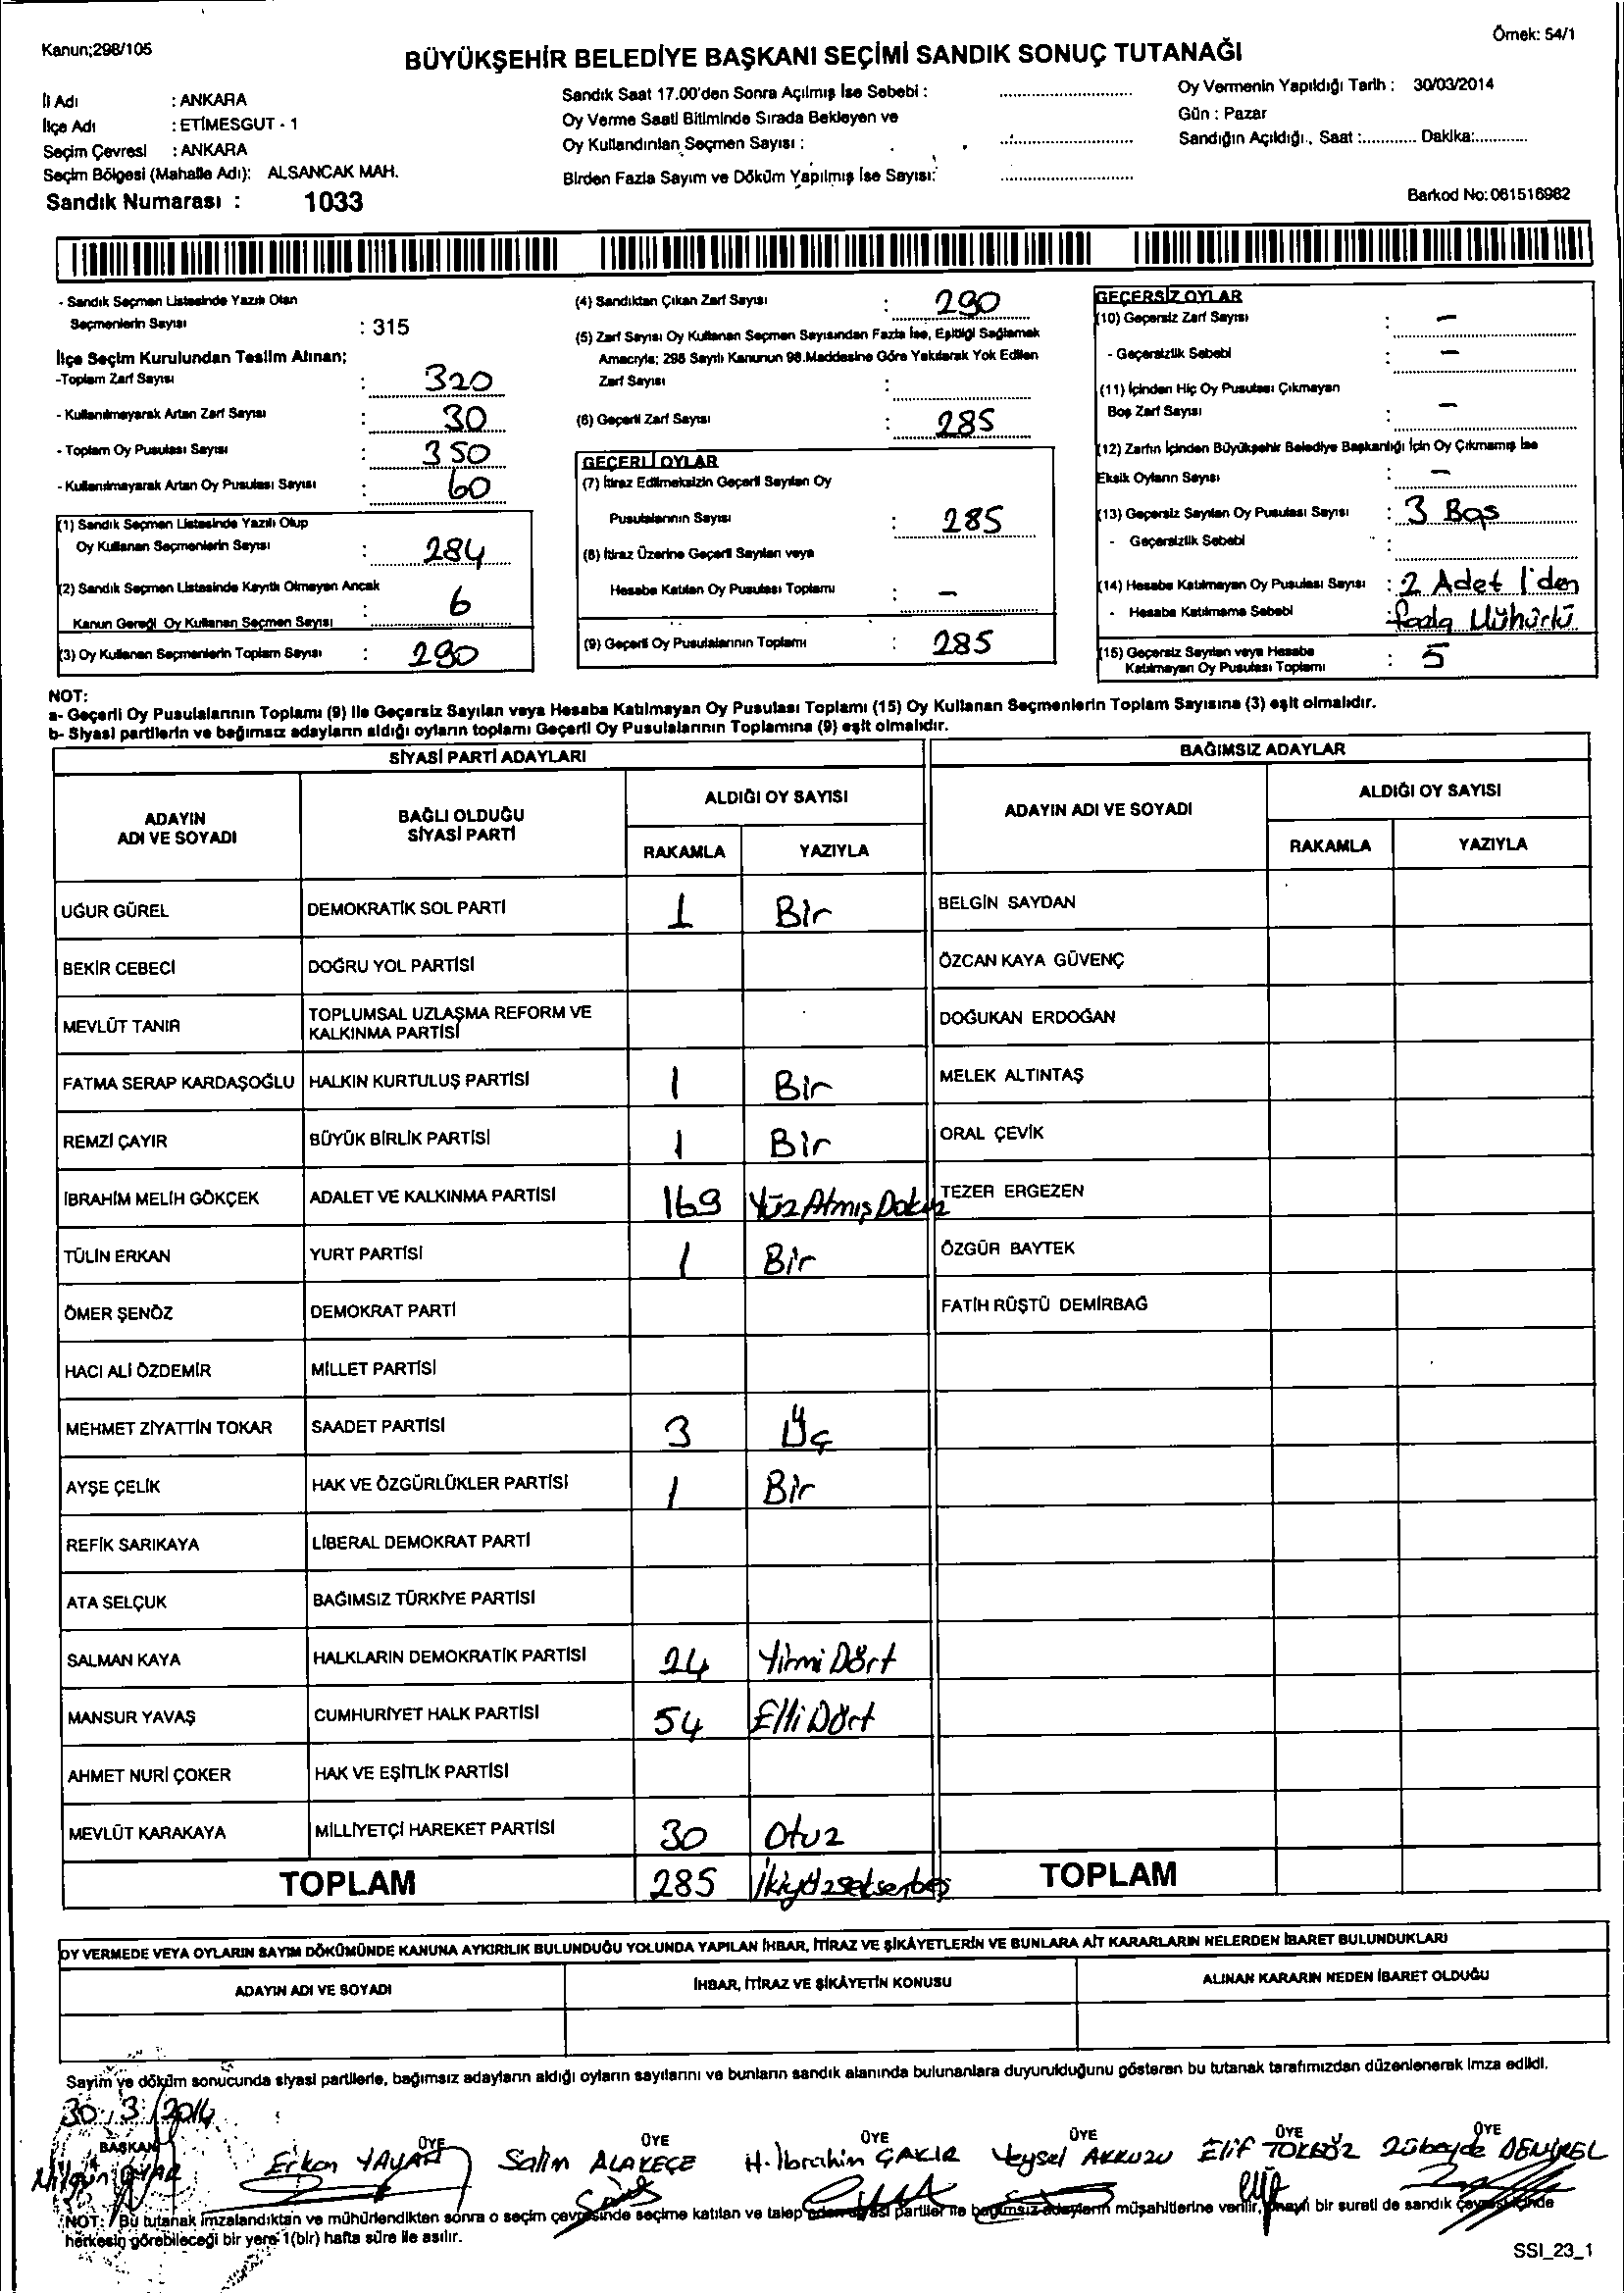 Kanun;298/105
Örnek: 54/1
BÜYÜKŞEHİR BELEDİYE BAŞKANI SEÇİMİ SANDIK SONUÇ TUTANAĞI
İl Adı : ANKARA
İlçe Adı : ETİMESGUT - 1
Seçim Çevresi : ANKARA
Seçim Bölgesi (Mahalle Adı): ALSANCAK MAH.
Sandık Numarası : 1033
Sandık Saat 17.00'den Sonra Açılmış İse Sebebi :
Oy Verme Saati Bitiminde Sırada Bekleyen ve
Oy Kullandırılan Seçmen Sayısı :
Birden Fazla Sayım ve Döküm Yapılmış İse Sayısı:
Oy Vermenin Yapıldığı Tarih : 30/03/2014
Gün : Pazar
Sandığın Açıldığı, Saat :............. Dakika:.............
Barkod No: 061516982
- Sandık Seçmen Listesinde Yazılı Olan
Seçmenlerin Sayısı : 315
İlçe Seçim Kurulundan Teslim Alınan;
-Toplam Zarf Sayısı : 320
- Kullanılmayarak Artan Zarf Sayısı : 30
- Toplam Oy Pusulası Sayısı : 350
- Kullanılmayarak Artan Oy Pusulası Sayısı : 60
(1) Sandık Seçmen Listesinde Yazılı Olup
Oy Kullanan Seçmenlerin Sayısı : 284
(2) Sandık Seçmen Listesinde Kayıtlı Olmayan Ancak
Kanun Gereği Oy Kullanan Seçmen Sayısı : 6
(3) Oy Kullanan Seçmenlerin Toplam Sayısı : 290
(4) Sandıktan Çıkan Zarf Sayısı : 290
(5) Zarf Sayısı Oy Kullanan Seçmen Sayısından Fazla İse, Eşitliği Sağlamak
Amacıyla; 298 Sayılı Kanunun 98.Maddesine Göre Yakılarak Yok Edilen
Zarf Sayısı :
(6) Geçerli Zarf Sayısı : 285
GEÇERLİ OYLAR
(7) İtiraz Edilmeksizin Geçerli Sayılan Oy
Pusulalarının Sayısı : 285
(8) İtiraz Üzerine Geçerli Sayılan veya
Hesaba Katılan Oy Pusulası Toplamı : -
(9) Geçerli Oy Pusulalarının Toplamı : 285
GEÇERSİZ OYLAR
(10) Geçersiz Zarf Sayısı : -
- Geçersizlik Sebebi : -
(11) İçinden Hiç Oy Pusulası Çıkmayan
Boş Zarf Sayısı : -
(12) Zarfın İçinden Büyükşehir Belediye Başkanlığı İçin Oy Çıkmamış İse
Eksik Oyların Sayısı : -
(13) Geçersiz Sayılan Oy Pusulası Sayısı : 3 Boş
- Geçersizlik Sebebi :
(14) Hesaba Katılmayan Oy Pusulası Sayısı : 2 Adet 1'den
- Hesaba Katılmama Sebebi : fazla Mühürlü
(15) Geçersiz Sayılan veya Hesaba
Katılmayan Oy Pusulası Toplamı : 5
NOT:
a- Geçerli Oy Pusulalarının Toplamı (9) İle Geçersiz Sayılan veya Hesaba Katılmayan Oy Pusulası Toplamı (15) Oy Kullanan Seçmenlerin Toplam Sayısına (3) eşit olmalıdır.
b- Siyasi partilerin ve bağımsız adayların aldığı oyların toplamı Geçerli Oy Pusulalarının Toplamına (9) eşit olmalıdır.
SİYASİ PARTİ ADAYLARI
BAĞIMSIZ ADAYLAR
ADAYIN ADI VE SOYADI
BAĞLI OLDUĞU SİYASİ PARTİ
ALDIĞI OY SAYISI
RAKAMLA YAZIYLA
ADAYIN ADI VE SOYADI
ALDIĞI OY SAYISI
RAKAMLA YAZIYLA
UĞUR GÜREL DEMOKRATİK SOL PARTİ 1 Bir BELGİN SAYDAN
BEKİR CEBECİ DOĞRU YOL PARTİSİ ÖZCAN KAYA GÜVENÇ
MEVLÜT TANIR TOPLUMSAL UZLAŞMA REFORM VE KALKINMA PARTİSİ DOĞUKAN ERDOĞAN
FATMA SERAP KARDAŞOĞLU HALKIN KURTULUŞ PARTİSİ 1 Bir MELEK ALTINTAŞ
REMZİ ÇAYIR BÜYÜK BİRLİK PARTİSİ 1 Bir ORAL ÇEVİK
İBRAHİM MELİH GÖKÇEK ADALET VE KALKINMA PARTİSİ 169 Yüz Atmış Dokuz TEZER ERGEZEN
TÜLİN ERKAN YURT PARTİSİ 1 Bir ÖZGÜR BAYTEK
ÖMER ŞENÖZ DEMOKRAT PARTİ FATİH RÜŞTÜ DEMİRBAĞ
HACI ALİ ÖZDEMİR MİLLET PARTİSİ
MEHMET ZİYATTİN TOKAR SAADET PARTİSİ 3 Üç
AYŞE ÇELİK HAK VE ÖZGÜRLÜKLER PARTİSİ 1 Bir
REFİK SARIKAYA LİBERAL DEMOKRAT PARTİ
ATA SELÇUK BAĞIMSIZ TÜRKİYE PARTİSİ
SALMAN KAYA HALKLARIN DEMOKRATİK PARTİSİ 24 Yirmi Dört
MANSUR YAVAŞ CUMHURİYET HALK PARTİSİ 54 Elli Dört
AHMET NURİ ÇOKER HAK VE EŞİTLİK PARTİSİ
MEVLÜT KARAKAYA MİLLİYETÇİ HAREKET PARTİSİ 30 Otuz
TOPLAM 285 İkiyüzseksenbeş TOPLAM
OY VERMEDE VEYA OYLARIN SAYIM DÖKÜMÜNDE KANUNA AYKIRILIK BULUNDUĞU YOLUNDA YAPILAN İHBAR, İTİRAZ VE ŞİKÂYETLERİN VE BUNLARA AİT KARARLARIN NELERDEN İBARET BULUNDUKLARI
ADAYIN ADI VE SOYADI İHBAR, İTİRAZ VE ŞİKÂYETİN KONUSU ALINAN KARARIN NEDEN İBARET OLDUĞU
Sayim ve döküm sonucunda siyasi partilerle, bağımsız adayların aldığı oyların sayılarını ve bunların sandık alanında bulunanlara duyurulduğunu gösteren bu tutanak tarafımızdan düzenlenerek imza edildi.
30/3/2014
BAŞKAN ÜYE ÜYE ÜYE ÜYE ÜYE ÜYE
Nilgün Erkan Salim ALAKEÇE H. İbrahim ÇAKIR Veysel AKKUZU Elif Zübeyde DEMİREL
NOT: Bu tutanak imzalandıktan ve mühürlendikten sonra o seçim çevresinde seçime katılan ve talep eden siyasi partiler ile bağımsız adayların müşahitlerine verilir, onaylı bir sureti de sandık çevresi içinde
herkesin görebileceği bir yere 1(bir) hafta süre ile asılır.
SSI_23_1